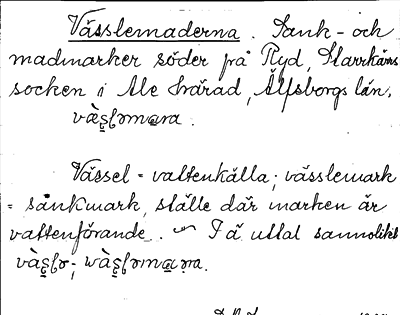 Vässlemaderna. Sank- och
madmarker söder på Ryd, Starrkärrs
socken i Ale härad, Älfsborgs län.
Vässel = vattenkälla; vässlemark
= sänkmark, ställe där marken är
vattenförande. I ä uttal sannolikt